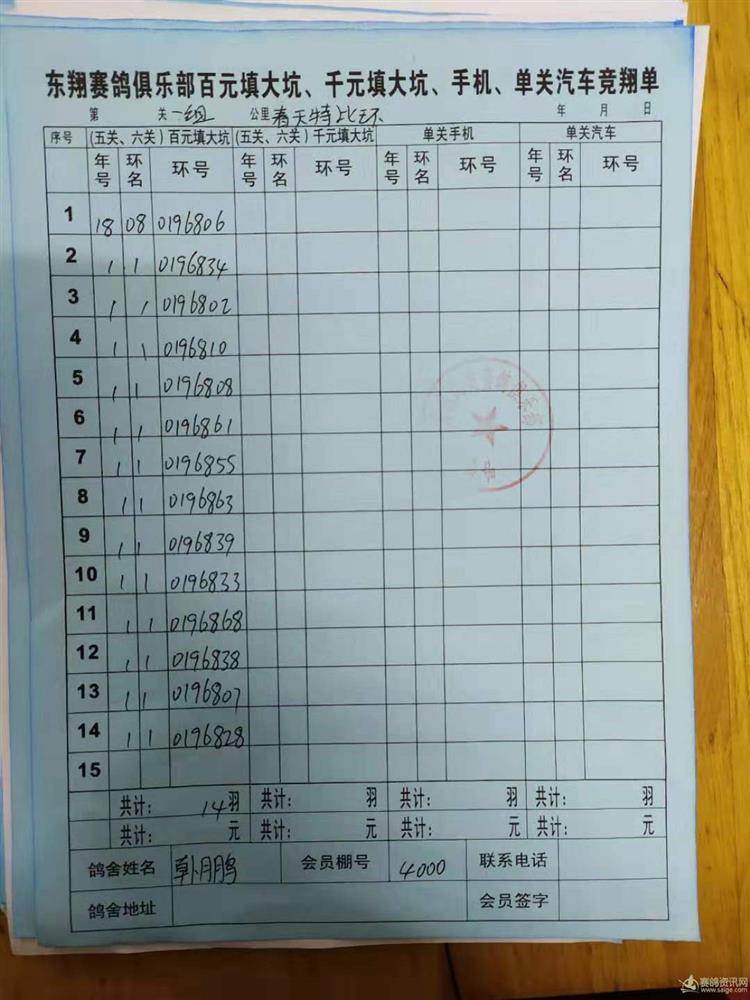 东翔赛鸽俱乐部百元填大坑、千元填大坑、手机、单关汽车竞翔单
第 关 一组 公里 春天特比环 年 月 日
序号 (五关、六关)百元填大坑 (五关、六关)千元填大坑 单关手机 单关汽车
年号 环名 环号 年号 环名 环号 年号 环名 环号 年号 环名 环号
1 18 08 0196806
2 1 1 0196834
3 1 1 0196802
4 1 1 0196810
5 1 1 0196808
6 1 1 0196861
7 1 1 0196855
8 1 1 0196863
9 1 1 0196839
10 1 1 0196833
11 1 1 0196868
12 1 1 0196838
13 1 1 0196807
14 1 1 0196828
15
共计: 14羽 共计: 羽 共计: 羽 共计: 羽
共计: 元 共计: 元 共计: 元 共计: 元
鸽舍姓名 月鹏 会员棚号 4000 联系电话
鸽舍地址 会员签字
赛鸽资讯网
www.saige.com